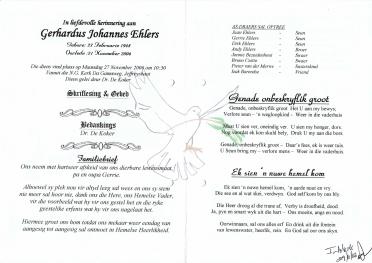 In liefdevolle herinnering aan
Gerhardus Johannes Ehlers
Gebore: 23 Februarie 1948
Oorlede: 21 November 2006
Die diens vind plaas op Maandag 27 November 2006 om 10:30
Vanuit die N.G. Kerk
Diens gelei deur Dr. De Koker
Skriflesing & Gebed
Bedankings
Dr. De Koker
Familiebrief
Ons neem met hartseer afskeid van ons dierbare
pa en oupa Gerrie.
Alhoewel sy plek nou vir altyd leeg sal wees en ons sy stem
nie meer sal hoor nie, dank ons die Here, ons Hemelse Vader,
vir die voorbeeld wat hy vir ons gestel het en die ryke
geestelike erfenis wat hy vir ons nagelaat het.
Hiermee groet ons hom totdat ons mekaar weer eendag van
aangesig tot aangesig sal ontmoet in Hemelse Heerlikheid.
AS DRAERS SAL OPTREE
Juan Ehlers - Seun
Gerrie Ehlers - Seun
Dirk Ehlers - Seun
Andy Ehlers - Broer
Bruno Coetse - Swaer
Pieter van der Merwe -
Izak Barendse - Vriend
Genade onbeskryflik groot
Genade, onbeskryflik groot Het U aan my bewys,
Verlore seun – 'n wegloopkind – Weer in die vaderhuis
Waar U sien ver, oneindig ver U sien my honger, dors.
Nog voordat ek kon skuld bely, Druk U my aan die bors
Genade, onbeskryflik groot – Daar's fees, ek is weer tuis.
U Seun bring my – verlore mens – Weer in die vaderhuis
Ek sien 'n nuwe hemel kom
Ek sien 'n nuwe hemel kom, 'n aarde nuut en vry
Die see en al wat dun, verdwyn. God self kom by ons bly.
Die Heer droog al die trane af, Verby is droefheid, dood
Ja, pyn en smart wyk uit die hart – Ons moeite, angs en nood
Oorwinnaar, sal ons alles erf En drink uit die fontein
van lewenswater, heerlik, rein. En God sal oor ons skyn.